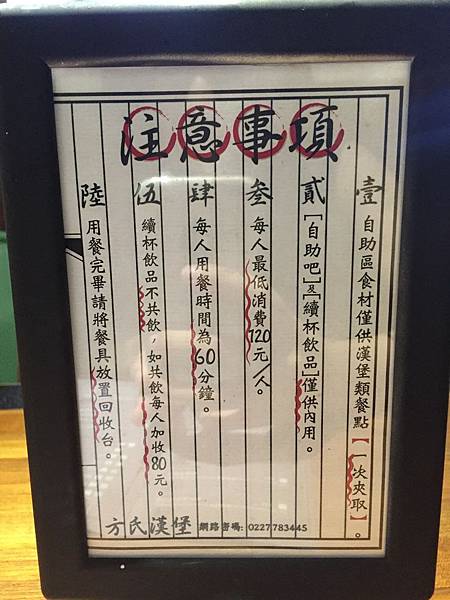 注意事項
壹 自助區食材僅供漢堡類餐點【一次夾取】。
貳 [自助吧]&[續杯飲品]僅供內用。
叁 每人最低消費120元/人。
肆 每人用餐時間為60分鐘。
伍 續杯飲品不共飲,如共飲每人加收80元。
陸 用餐完畢請將餐具放置回收台。
方氏漢堡 網路密碼:0227783445